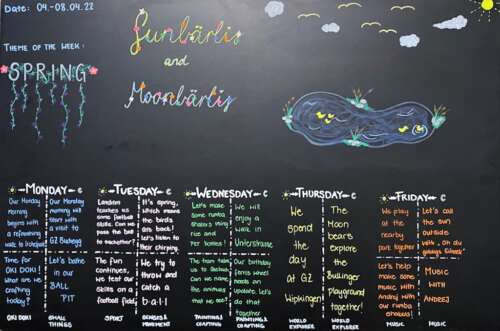 Date: 04.-08.04.22
THEME OF THE WEEK:
SPRING
Sunbärlis
and
Moonbärlis
MONDAY
Our Monday
morning
begins with
a refreshing
walk to
Our Monday
morning will
start with
a visit at
GZ Buchegg
Time for
OKI DOKI!
What are we
crafting
today?
Let's bathe
in our
BALL
PIT
OKI DOKI
SMALL
THINGS
TUESDAY
Landon
teaches us
some football
skills. Can we
pass the ball
to eachother?
It's spring,
which means
the birds
are back!
Let's listen to
their chirping.
The fun
continues,
we test our
skills on a
football field.
We try to
throw and
catch a
b-a-l-l
SPORT
SENSES &
MOVEMENT
WEDNESDAY
Let's make
some rumba
shakers using
rice and
Pet bottles!
We will
enjoy a
walk in
Unterstrass
The
us to
Gachan. We
make the
instrument
out of
sand.
needs an
update. Let's
do that
together
PAINTING &
CRAFTING
PAINTING &
CRAFTING
THURSDAY
We
spend
the
day
at GZ
Wipkingen!
The
Moon
bears
Explore
the
Bullinger
playground
together!
WORLD
EXPLORER
WORLD
EXPLORER
FRIDAY
We play
at the
nearby
park together
Let's call
the sun
outside
with
Let's help
make some
music with
Andrej with
our rumba
shakers!
MUSIC
WITH
ANDREJ
MUSIC
MUSIC